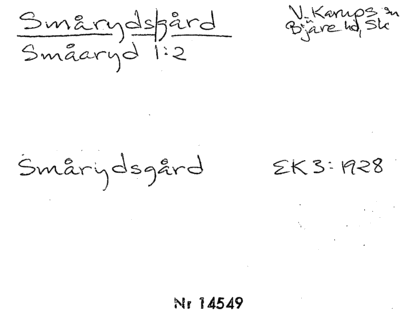 Smårydsgård
V. Karups sn
Småaryd 1:2
Bjäre hd, Sk
Smårydsgård
EK 3: 1928
Nr 14549